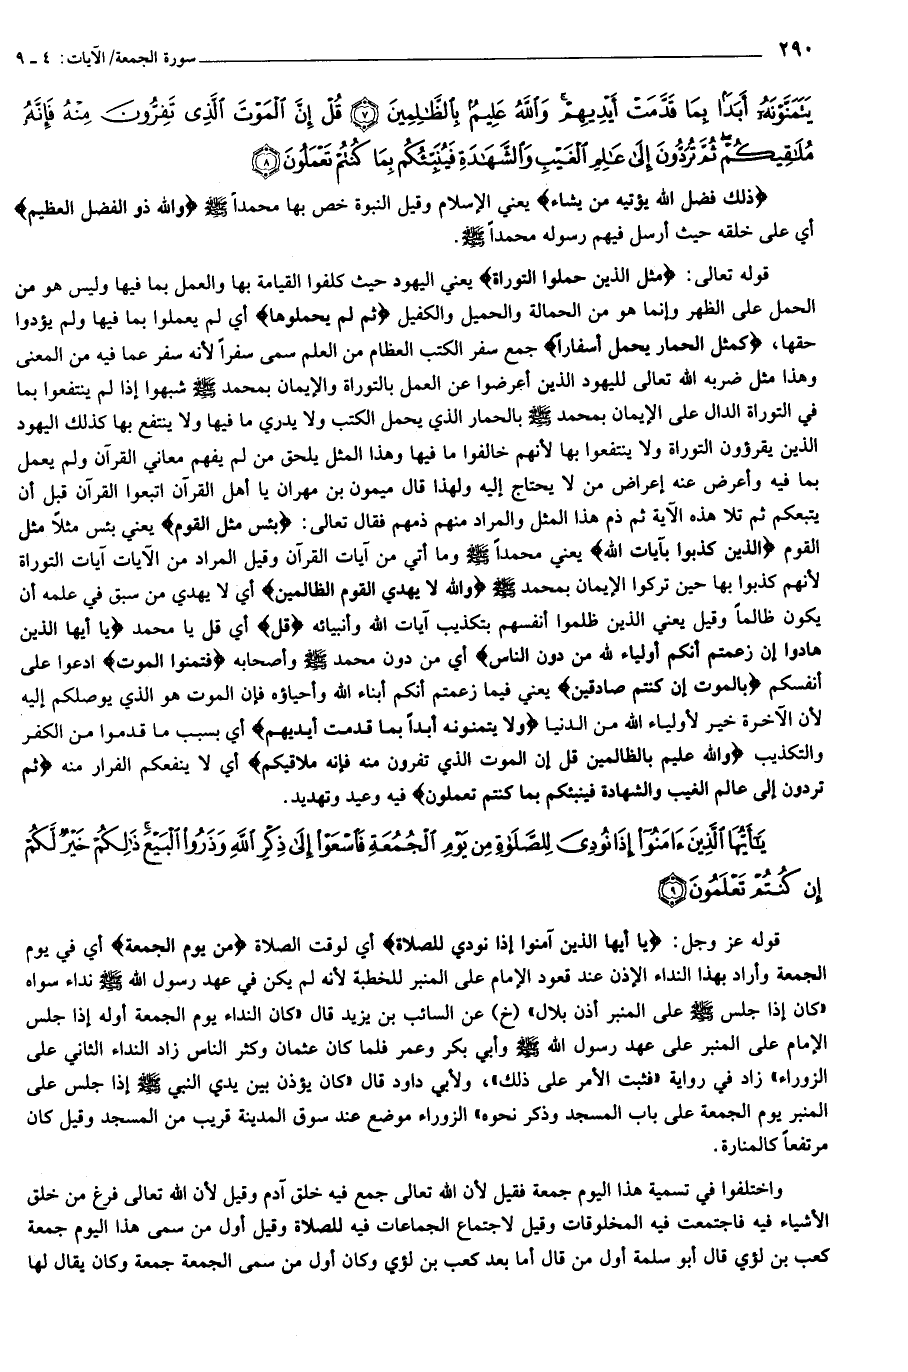 ٢٩٠ سورة الجمعة/ الآيات: ٤ ـ ٩
يَتَمَنَّوْنَهُۥٓ أَبَدَۢا بِمَا قَدَّمَتْ أَيْدِيهِمْ ۚ وَٱللَّهُ عَلِيمٌۢ بِٱلظَّٰلِمِينَ ﴿٧﴾ قُلْ إِنَّ ٱلْمَوْتَ ٱلَّذِى تَفِرُّونَ مِنْهُ فَإِنَّهُۥ
مُلَٰقِيكُمْ ۖ ثُمَّ تُرَدُّونَ إِلَىٰ عَٰلِمِ ٱلْغَيْبِ وَٱلشَّهَٰدَةِ فَيُنَبِّئُكُم بِمَا كُنتُمْ تَعْمَلُونَ ﴿٨﴾
﴿ذلك فضل الله يؤتيه من يشاء﴾ يعني الإسلام وقيل النبوة خص بها محمداً ﷺ ﴿والله ذو الفضل العظيم﴾
أي على خلقه حيث أرسل فيهم رسوله محمداً ﷺ.
قوله تعالى: ﴿مثل الذين حملوا التوراة﴾ يعني اليهود حيث كلفوا القيامة بها والعمل بما فيها وليس هو من
الحمل على الظهر وإنما هو من الحمالة والحميل والكفيل ﴿ثم لم يحملوها﴾ أي لم يعملوا بما فيها ولم يؤدوا
حقها، ﴿كمثل الحمار يحمل أسفاراً﴾ جمع سفر الكتب العظام من العلم سمى سفراً لأنه سفر عما فيه من المعنى
وهذا مثل ضربه الله تعالى لليهود الذين أعرضوا عن العمل بالتوراة والإيمان بمحمد ﷺ شبهوا إذا لم ينتفعوا بما
في التوراة الدال على الإيمان بمحمد ﷺ بالحمار الذي يحمل الكتب ولا يدري ما فيها ولا ينتفع بها كذلك اليهود
الذين يقرؤون التوراة ولا ينتفعوا بها لأنهم خالفوا ما فيها وهذا المثل يلحق من لم يفهم معاني القرآن ولم يعمل
بما فيه وأعرض عنه إعراض من لا يحتاج إليه ولهذا قال ميمون بن مهران يا أهل القرآن اتبعوا القرآن قبل أن
يتبعكم ثم تلا هذه الآية ثم ذم هذا المثل والمراد منهم ذمهم فقال تعالى: ﴿بئس مثل القوم﴾ يعني بئس مثلاً مثل
القوم ﴿الذين كذبوا بآيات الله﴾ يعني محمداً ﷺ وما أتي من آيات القرآن وقيل المراد من الآيات آيات التوراة
لأنهم كذبوا بها حين تركوا الإيمان بمحمد ﷺ ﴿والله لا يهدي القوم الظالمين﴾ أي لا يهدي من سبق في علمه أن
يكون ظالماً وقيل يعني الذين ظلموا أنفسهم بتكذيب آيات الله وأنبيائه ﴿قل﴾ أي قل يا محمد ﴿يا أيها الذين
هادوا إن زعمتم أنكم أولياء لله من دون الناس﴾ أي من دون محمد ﷺ وأصحابه ﴿فتمنوا الموت﴾ ادعوا على
أنفسكم ﴿بالموت إن كنتم صادقين﴾ يعني فيما زعمتم أنكم أبناء الله وأحباؤه فإن الموت هو الذي يوصلكم إليه
لأن الآخرة خير لأولياء الله من الدنيا ﴿ولا يتمنونه أبداً بما قدمت أيديهم﴾ أي بسبب ما قدموا من الكفر
والتكذيب ﴿والله عليم بالظالمين قل إن الموت الذي تفرون منه فإنه ملاقيكم﴾ أي لا ينفعكم الفرار منه ﴿ثم
تردون إلى عالم الغيب والشهادة فينبئكم بما كنتم تعملون﴾ فيه وعيد وتهديد.
يَٰٓأَيُّهَا ٱلَّذِينَ ءَامَنُوٓا۟ إِذَا نُودِىَ لِلصَّلَوٰةِ مِن يَوْمِ ٱلْجُمُعَةِ فَٱسْعَوْا۟ إِلَىٰ ذِكْرِ ٱللَّهِ وَذَرُوا۟ ٱلْبَيْعَ ۚ ذَٰلِكُمْ خَيْرٌ لَّكُمْ
إِن كُنتُمْ تَعْلَمُونَ ﴿٩﴾
قوله عز وجل: ﴿يا أيها الذين آمنوا إذا نودي للصلاة﴾ أي لوقت الصلاة ﴿من يوم الجمعة﴾ أي في يوم
الجمعة وأراد بهذا النداء الإذن عند قعود الإمام على المنبر للخطبة لأنه لم يكن في عهد رسول الله ﷺ نداء سواه
«كان إذا جلس ﷺ على المنبر أذن بلال» (خ) عن السائب بن يزيد قال «كان النداء يوم الجمعة أوله إذا جلس
الإمام على المنبر على عهد رسول الله ﷺ وأبي بكر وعمر فلما كان عثمان وكثر الناس زاد النداء الثاني على
الزوراء» زاد في رواية «فثبت الأمر على ذلك»، ولأبي داود قال «كان يؤذن بين يدي النبي ﷺ إذا جلس على
المنبر يوم الجمعة على باب المسجد وذكر نحوه» الزوراء موضع عند سوق المدينة قريب من المسجد وقيل كان
مرتفعاً كالمنارة.
واختلفوا في تسمية هذا اليوم جمعة فقيل لأن الله تعالى جمع فيه خلق آدم وقيل لأن الله تعالى فرغ من خلق
الأشياء فيه فاجتمعت فيه المخلوقات وقيل لاجتماع الجماعات فيه للصلاة وقيل أول من سمى هذا اليوم جمعة
كعب بن لؤي قال أبو سلمة أول من قال أما بعد كعب بن لؤي وكان أول من سمى الجمعة جمعة وكان يقال لها